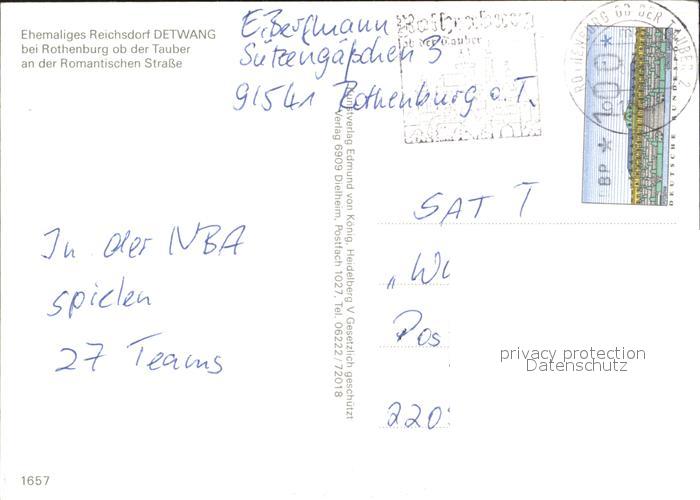 Ehemaliges Reichsdorf DETWANG
bei Rothenburg ob der Tauber
an der Romantischen Straße
E. Bergmann
Sülzengäßchen 3
91541 Rothenburg o. T.
Rothenburg
ob der Tauber
ROTHENBURG OB DER TAUBER 2
DBP * 100 *
DEUTSCHE BUNDESPOST
Kunstverlag Edmund von König, Heidelberg V Gesetzlich geschützt
Verlag 6909 Dielheim, Postfach 1027, Tel. 06222/72018
In der NBA
spielen
27 Teams
SAT
Pos
220
privacy protection
Datenschutz
1657